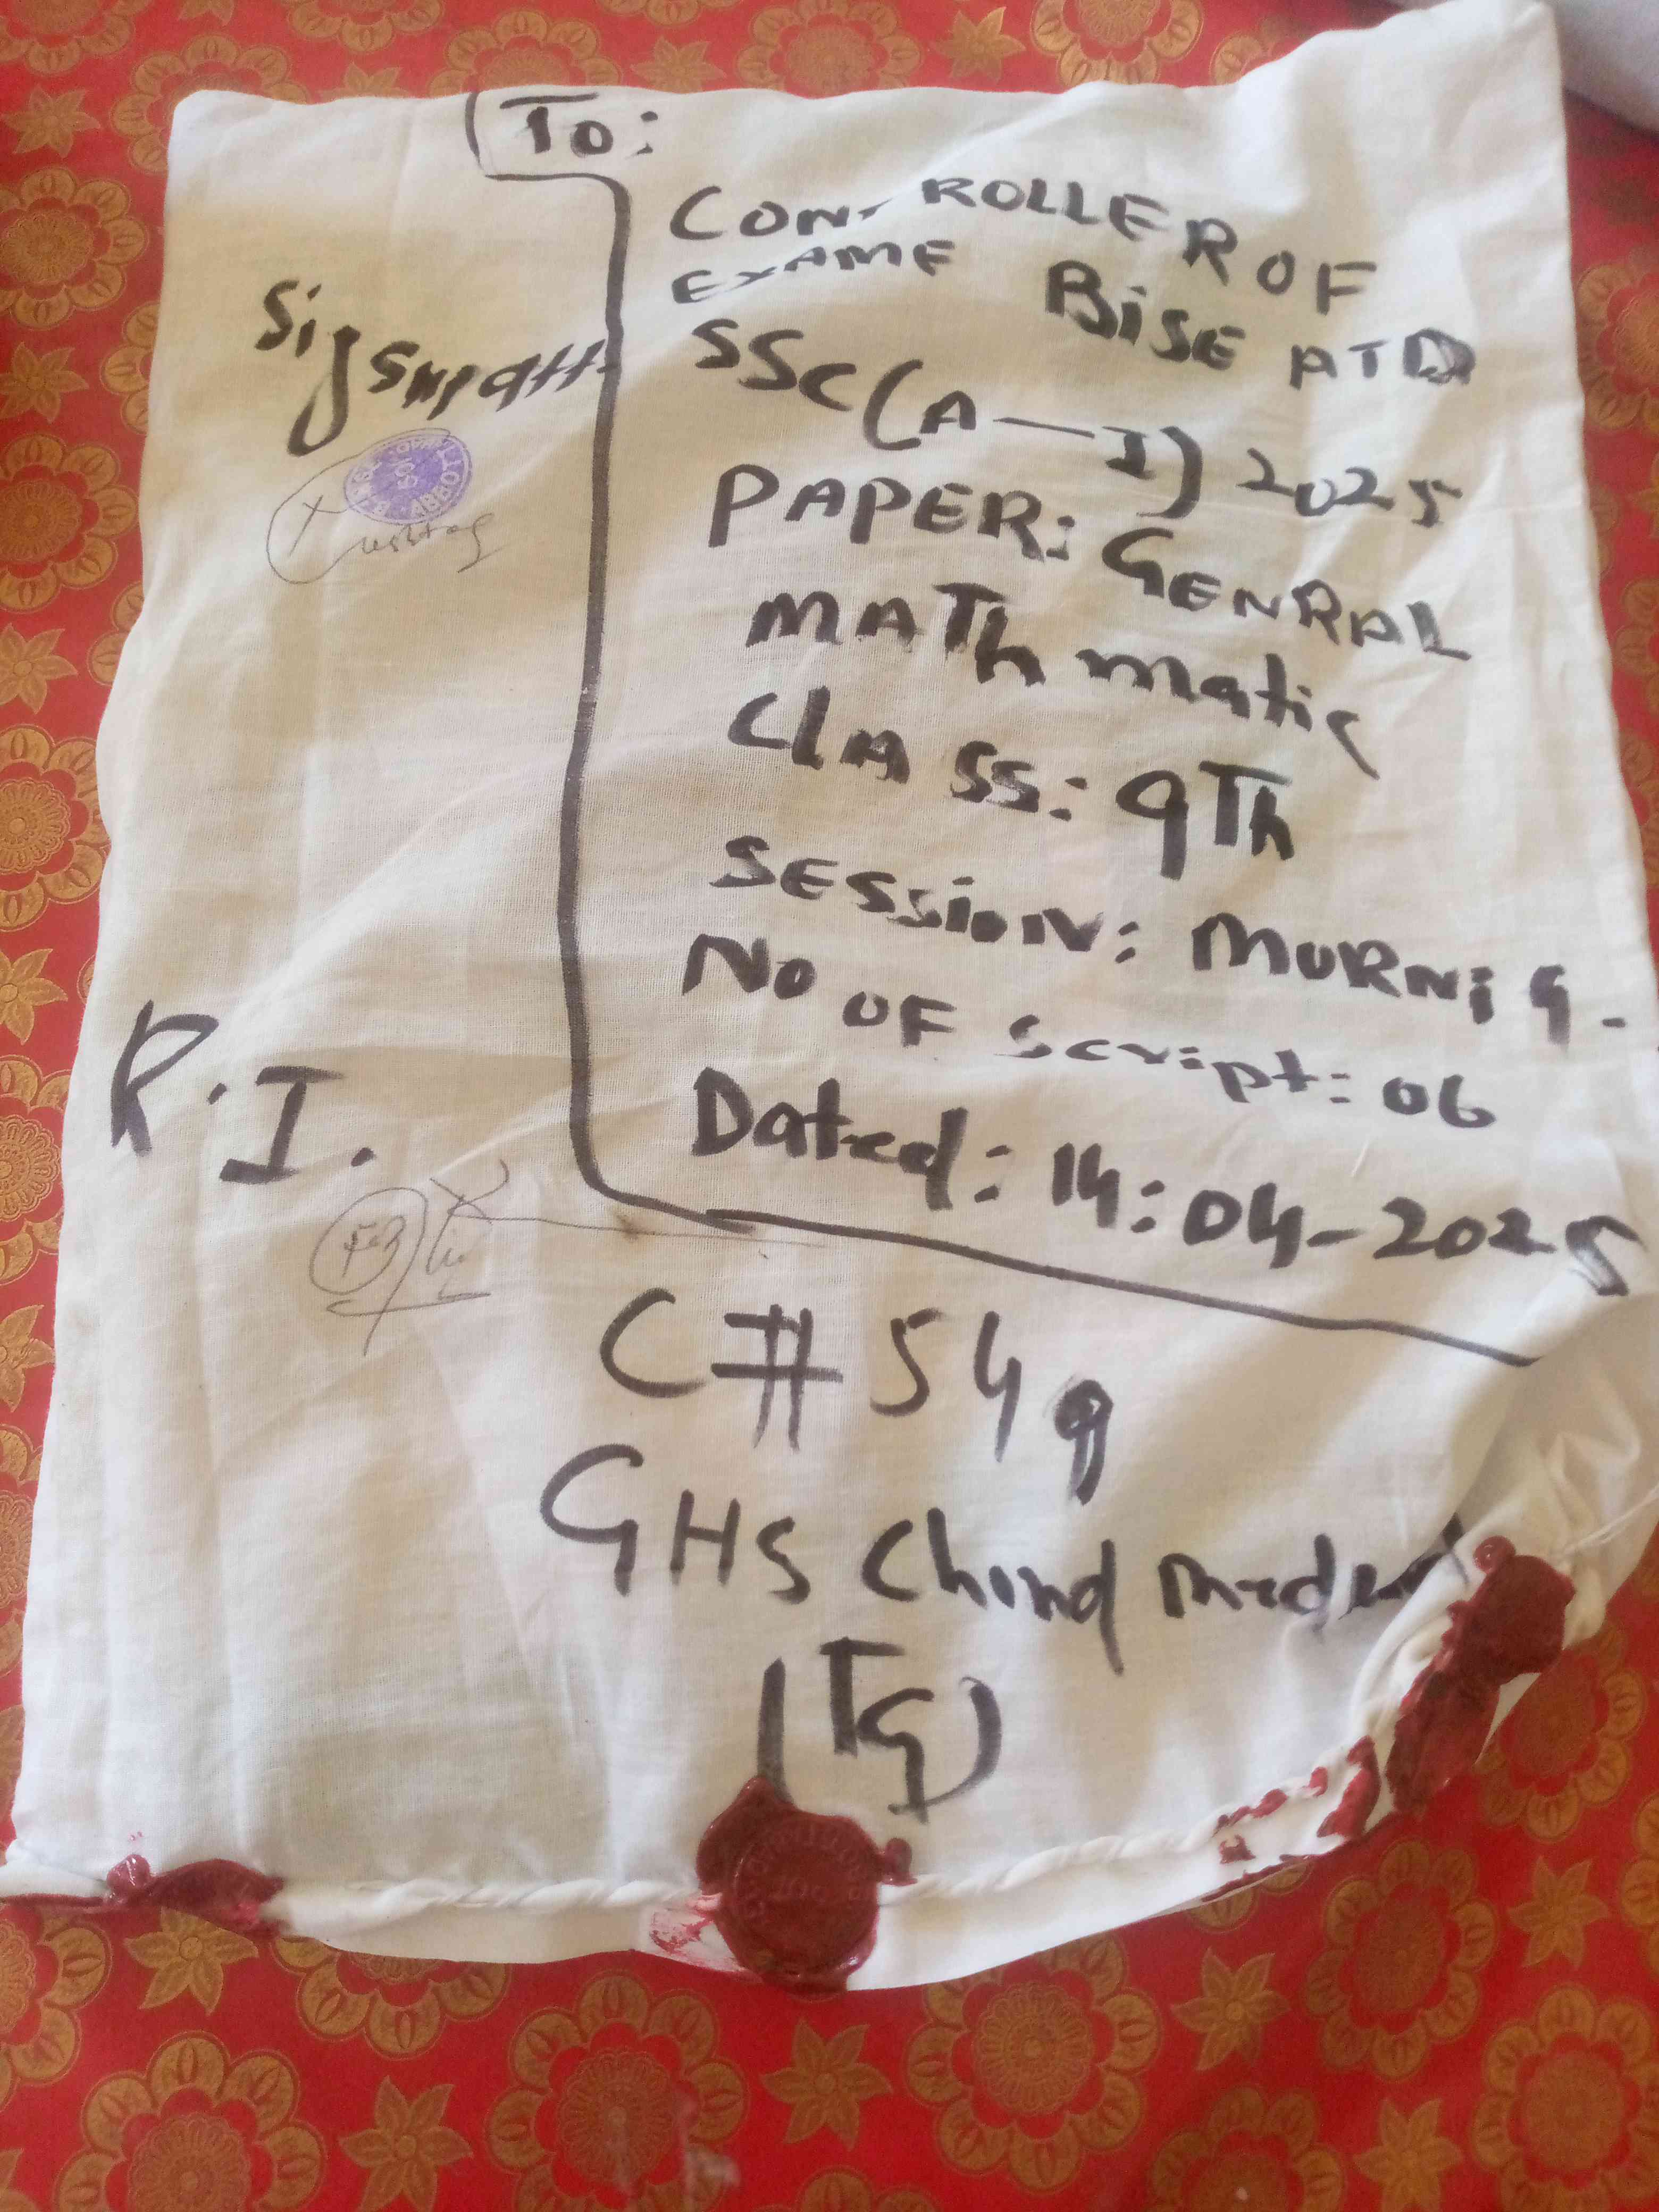 To:
CONTROLLER OF
EXAME BiSE ATD
SSC (A-I) 2025
PAPER: GENRAL
MATh matic
ClASS: 9Th
SESSiON: MURNi G.
NO OF Script: 06
Dated: 14:04-2025
Sig
R.I.
C# 549
GHS Chand
(TG)